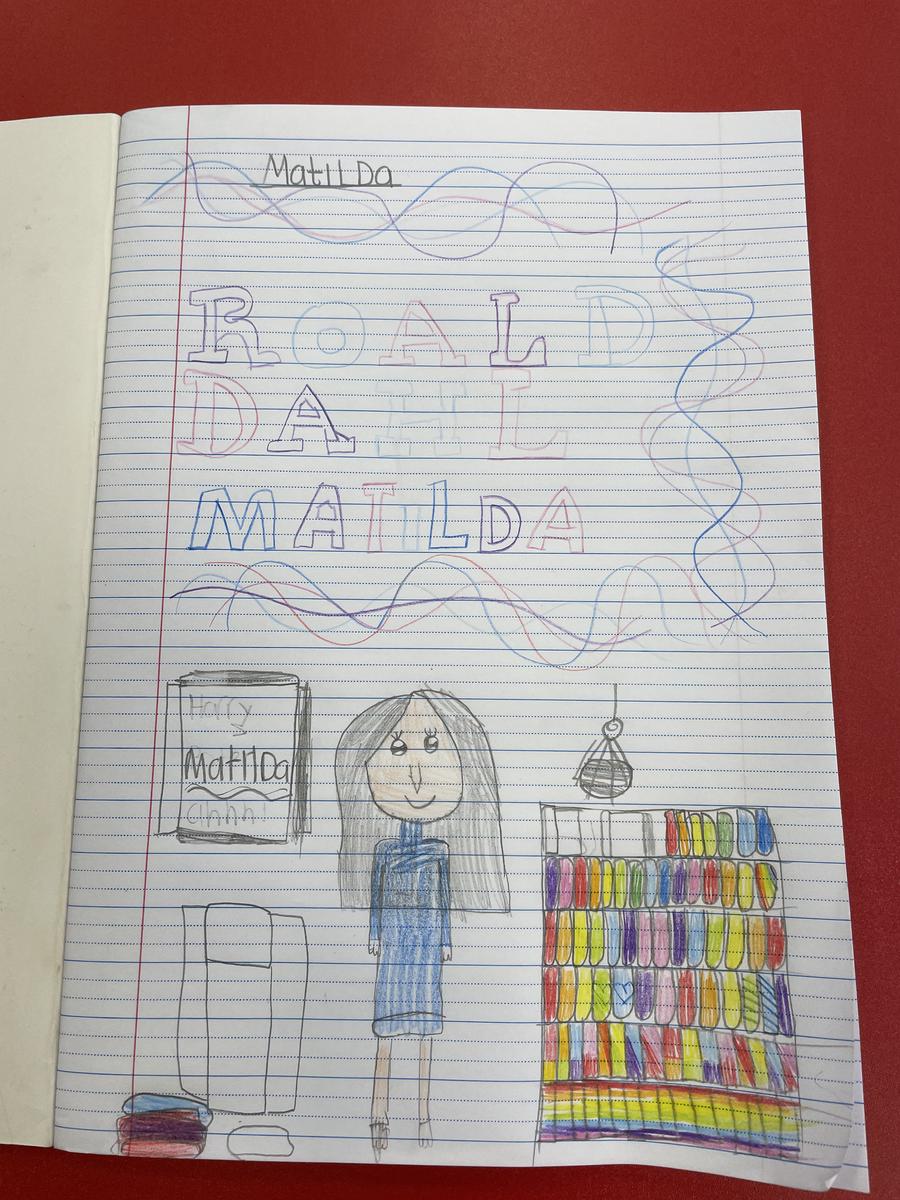 MatILDa
ROALD
DAHL
MATILDA
Harry
MatIlDa
ahhh!